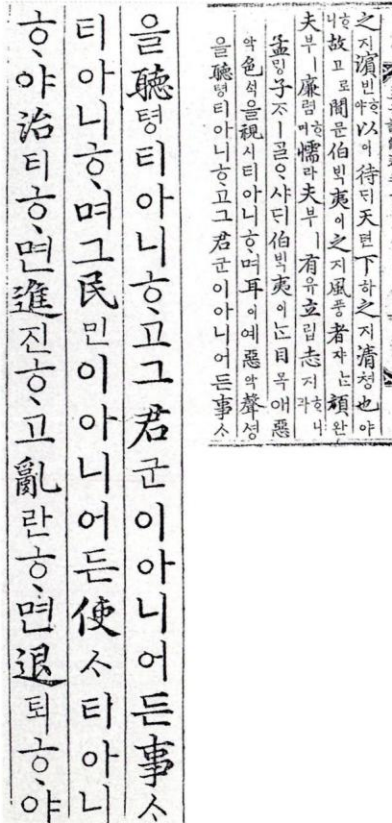 之지濱빈ᄒᆞ야以이待ᄃᆡ天텬下하之지淸쳥也야
ᄒᆞ니故고로聞문伯ᄇᆡᆨ夷이之지風풍者쟈ᄂᆞᆫ頑완
夫부ㅣ廉렴ᄒᆞ며懦라夫부ㅣ有유立립志지ᄒᆞ니라
孟ᄆᆡᆼ子ᄌᆞㅣᄀᆞᆯᄋᆞ샤ᄃᆡ伯ᄇᆡᆨ夷이ᄂᆞᆫ目목애惡
악色ᄉᆡᆨ을視시티아니ᄒᆞ며耳이예惡악聲셩
을聽텽티아니ᄒᆞ고그君군이아니어든事ᄉᆞ
을聽텽티아니ᄒᆞ고그君군이아니어든事ᄉᆞ
티아니ᄒᆞ며그民민이아니어든使ᄉᆞ티아니
ᄒᆞ야治티ᄒᆞ면進진ᄒᆞ고亂란ᄒᆞ면退퇴ᄒᆞ야